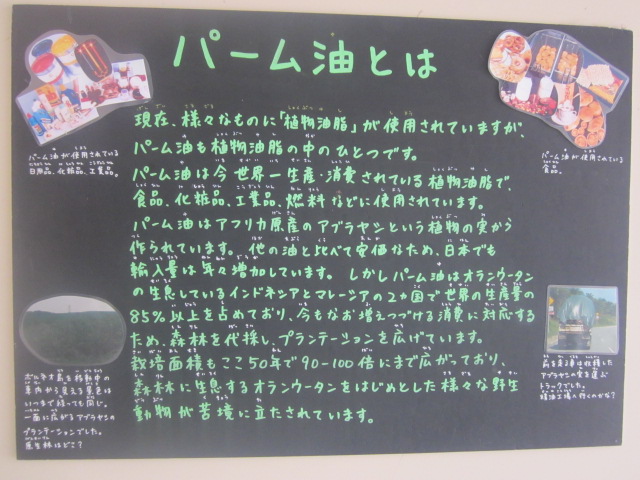 パーム油とは
現在、様々なものに「植物油脂」が使用されていますが、
パーム油も植物油脂の中のひとつです。
パーム油は今世界一生産・消費されている植物油脂で、
食品、化粧品、工業品、燃料などに使用されています。
パーム油はアフリカ原産のアブラヤシという植物の実から
作られています。他の油と比べて安価なため、日本でも
輸入量は年々増加しています。しかしパーム油はオランウータン
の生息しているインドネシアとマレーシアの2カ国で世界の生産量の
85%以上を占めており、今もなお増えつづける消費に対応する
ため、森林を伐採し、プランテーションを広げています。
栽培面積もここ50年で90-100倍にまで広がっており、
森林に生息するオランウータンをはじめとした様々な野生
動物が苦境に立たされています。
パーム油が使用されている
日用品、化粧品、工業品。
パーム油が使用されている
食品。
ボルネオ島を移動中の
車内から見える景色は
いつまで経っても同じ。
一面に広がるアブラヤシの
プランテーションでした。
原生林はどこ?
前を走る車は収穫した
アブラヤシの実を運ぶ
トラックでした。
精油工場へ行くのかな?